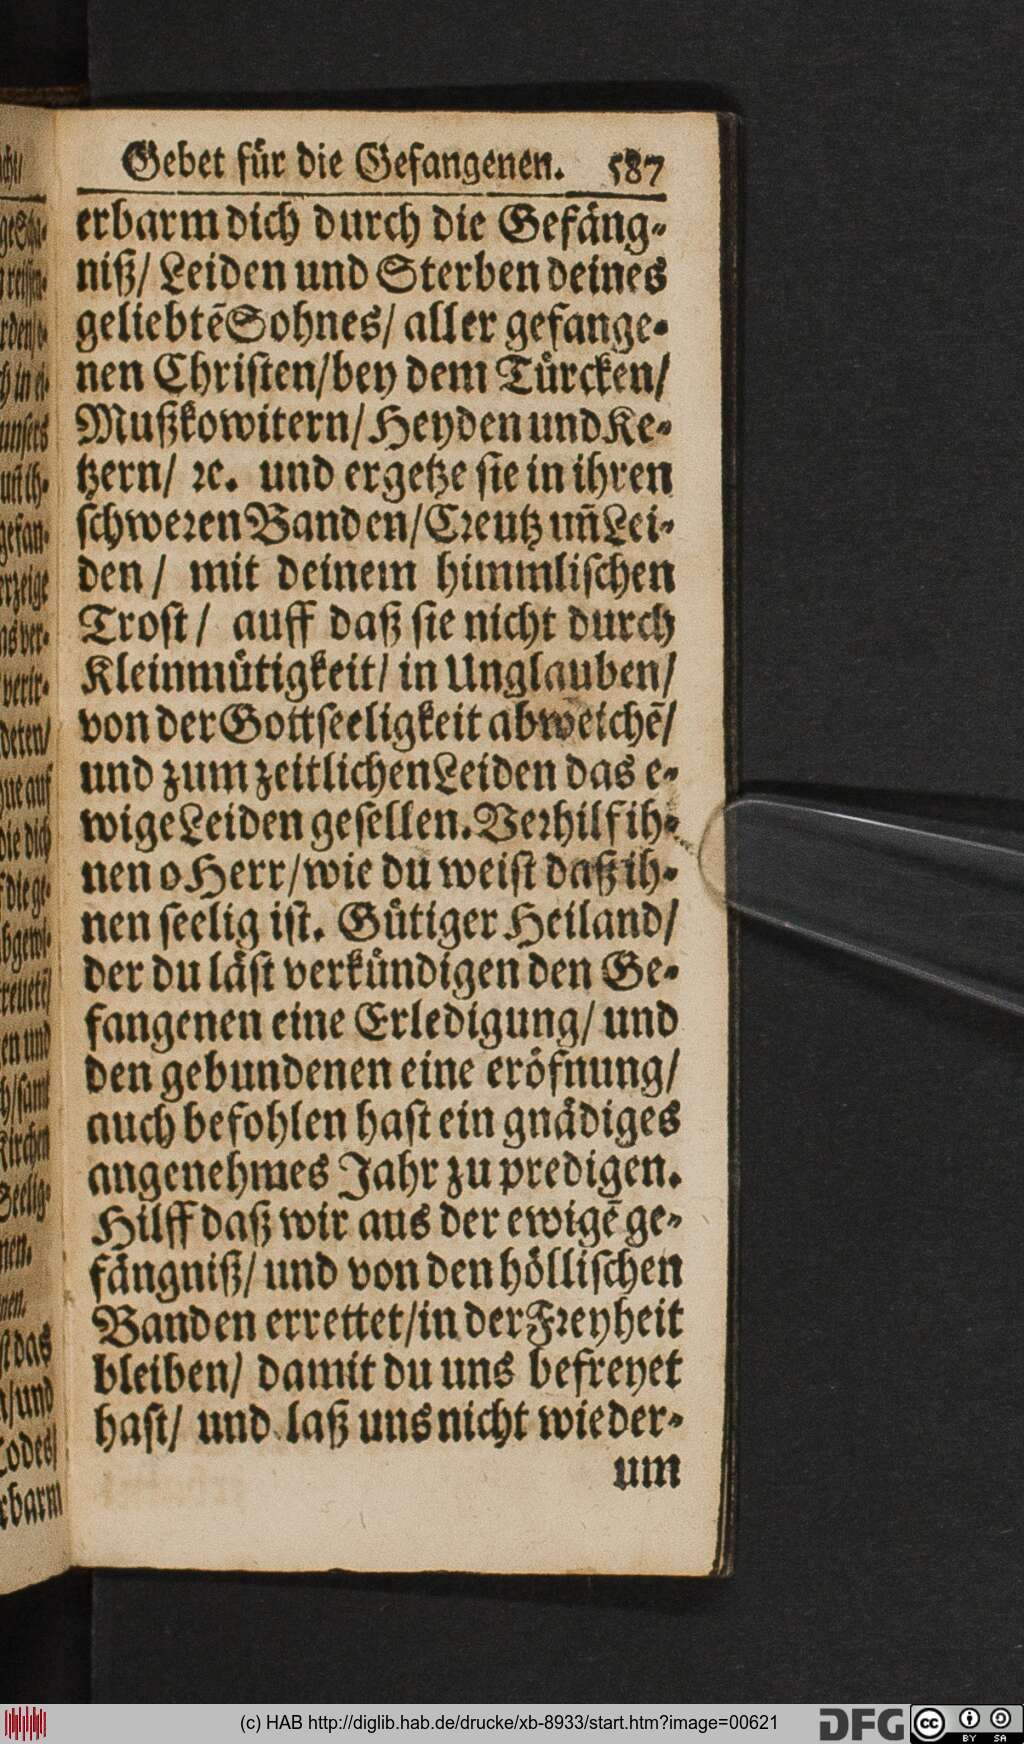 Gebet für die Gefangenen. 587
erbarm dich durch die Gefäng-
niß/ Leiden und Sterben deines
geliebtē Sohnes/ aller gefange-
nen Christen/ bey dem Türcken/
Mußkowitern/ Heyden und Ke-
tzern/ ꝛc. und ergetze sie in ihren
schweren Banden/ Creutz uñ Lei-
den/ mit deinem himmlischen
Trost/ auff daß sie nicht durch
Kleinmütigkeit/ in Unglauben/
von der Gottseeligkeit abweichē/
und zum zeitlichen Leiden das e-
wige Leiden gesellen. Verhilf ih-
nen o Herr/ wie du weist daß ih-
nen seelig ist. Gütiger Heiland/
der du läst verkündigen den Ge-
fangenen eine Erledigung/ und
den gebundenen eine eröfnung/
auch befohlen hast ein gnädiges
angenehmes Jahr zu predigen.
Hilff daß wir aus der ewigē ge-
fängniß/ und von den höllischen
Banden errettet/ in der Freyheit
bleiben/ damit du uns befreyet
hast/ und laß uns nicht wieder-
um
(c) HAB http://diglib.hab.de/drucke/xb-8933/start.htm?image=00621
DFG
cc
BY SA